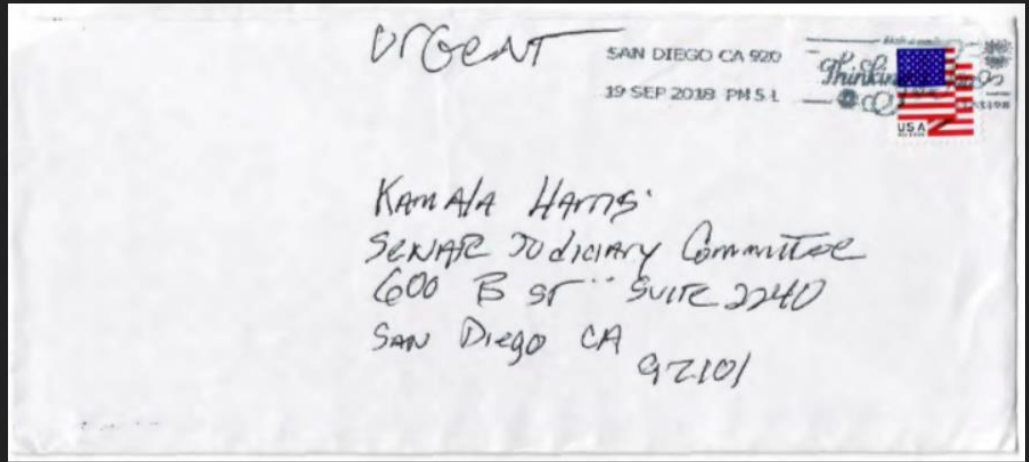 URGENT
SAN DIEGO CA 920
19 SEP 2018 PM 5 L
Thinking
USA
Kamala Harris
Senate Judiciary Committee
600 B ST Suite 2240
San Diego CA
92101